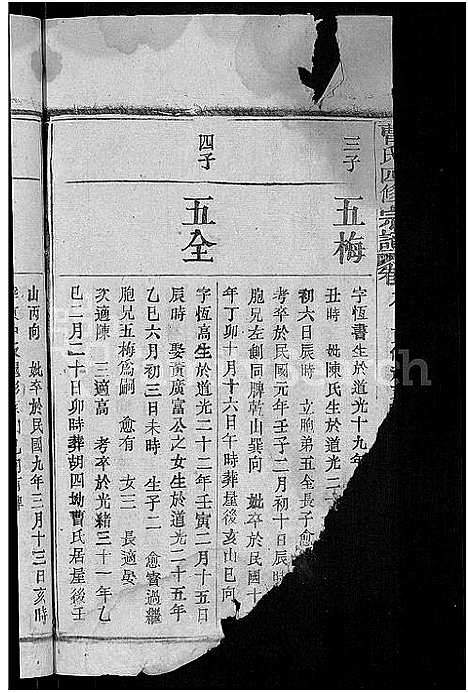 曹氏四修宗譜卷
三子
五梅
字恆書生於道光十九年
丑時 妣陳氏生於道光二
初六日辰時 立胞弟五全長子愈
考卒於民國元年壬子二月初十日辰時
胞兄左創同脾乾山巽向 妣卒於民國十
年丁卯十月十六日午時葬屋後亥山巳向
四子
五全
字恆高生於道光二十二年壬寅二月十五日
辰時 娶黃廣富公之女生於道光二十五年
乙巳六月初三日未時 生子二 愈實過繼
胞兄五梅爲嗣 愈有 女三 長適晏
次適陳 三適高 考卒於光緒三十一年乙
巳二月二十日卯時葬胡四坳曹氏居屋後壬
山丙向 妣卒於民國九年三月十三日亥時